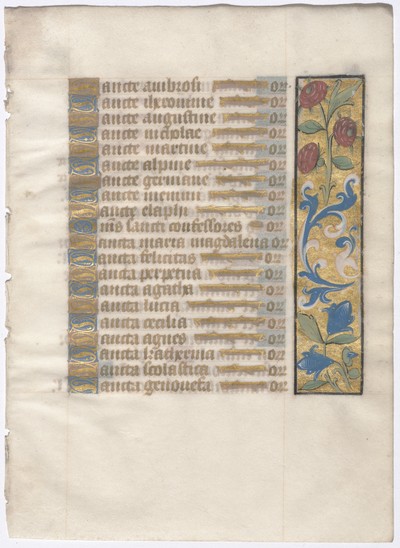 Sancte ambrosi or
Sancte iheronime or
Sancte augustine or
Sancte nicholae or
Sancte martine or
Sancte alpine or
Sancte germane or
Sancte memmi or
Sancte elaphi or
Oms sancti confessores or
Sancta maria magdalena or
Sancta felicitas or
Sancta perpetua or
Sancta agatha or
Sancta lucia or
Sancta cecilia or
Sancta agnes or
Sancta katherina or
Sancta scolastica or
Sancta genovefa or